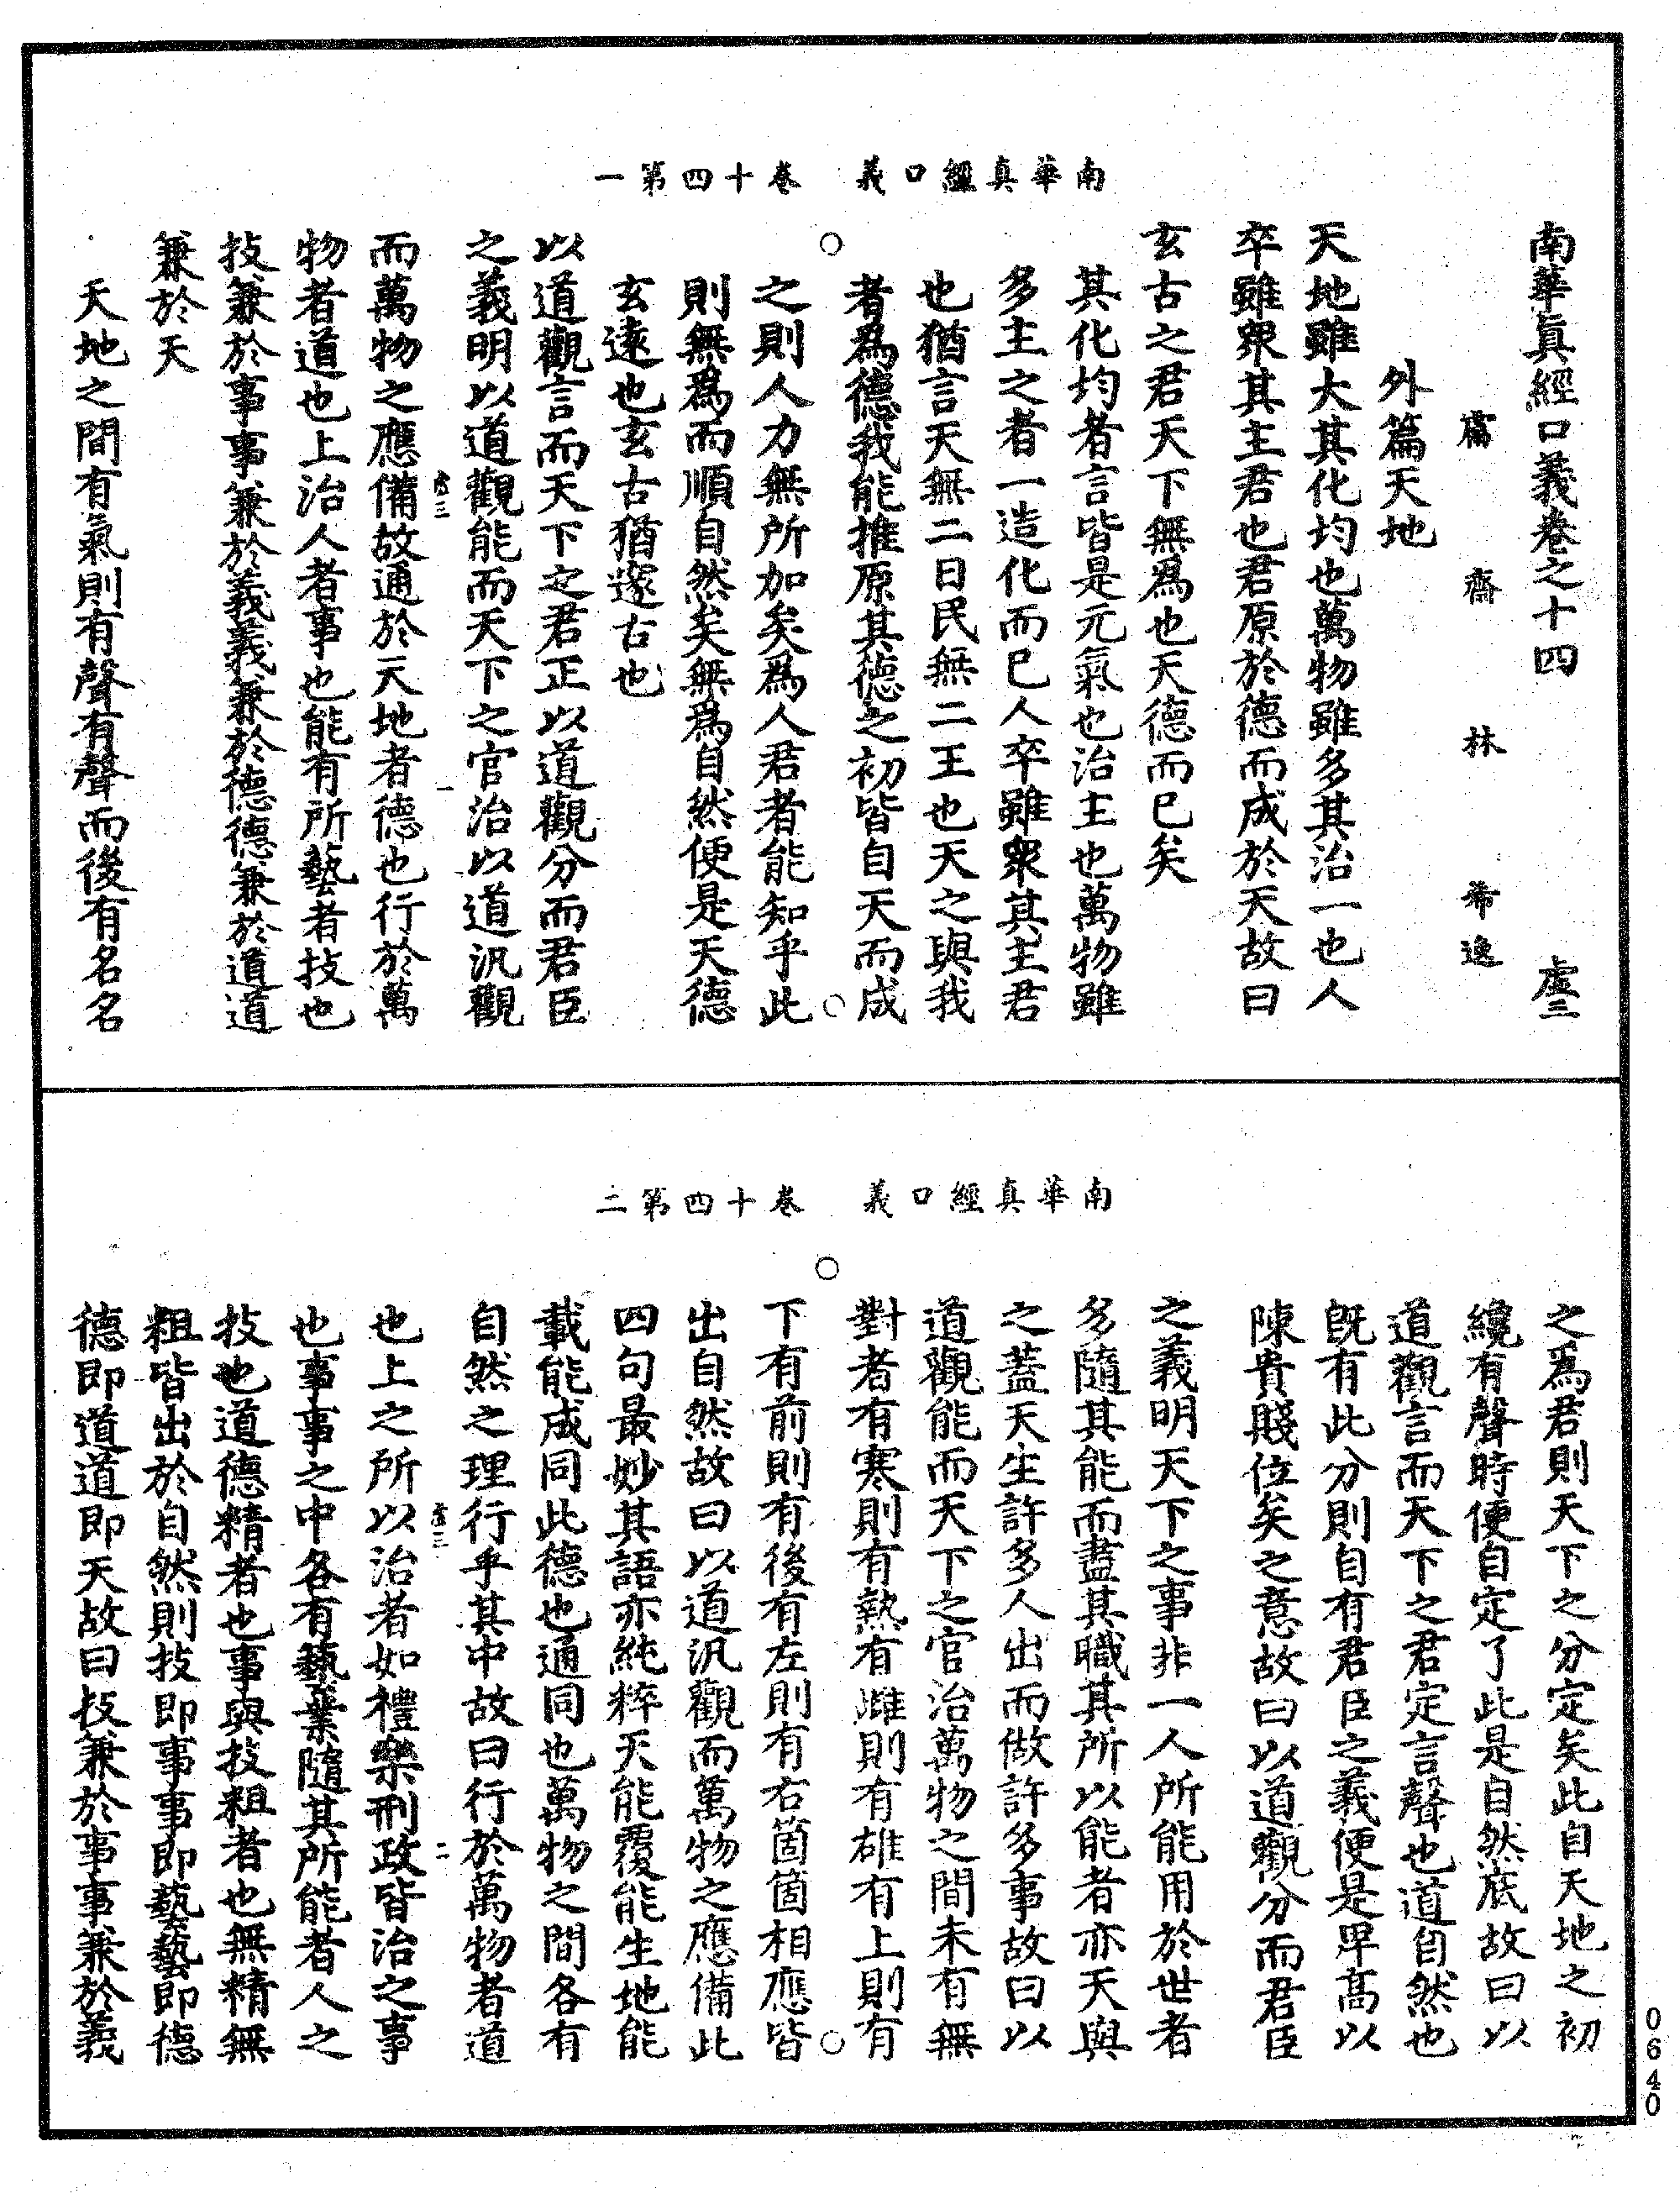 南華真經口義 卷十四第一
南華真經口義卷之十四 虛三
鬳齋林希逸
外篇天地
天地雖大其化均也萬物雖多其治一也人
卒雖衆其主君也君原於德而成於天故曰
玄古之君天下無爲也天德而已矣
其化均者言皆是元氣也治主也萬物雖
多主之者一造化而已人卒雖衆其主君
也猶言天無二日民無二王也天之與我
者爲德我能推原其德之初皆自天而成
之則人力無所加矣爲人君者能知乎此
則無爲而順自然矣無爲自然便是天德
玄遠也玄古猶邃古也
以道觀言而天下之君正以道觀分而君臣
之義明以道觀能而天下之官治以道汎觀
虛三 一
而萬物之應備故通於天地者德也行於萬
物者道也上治人者事也能有所藝者技也
技兼於事事兼於義義兼於德德兼於道道
兼於天
天地之間有氣則有聲有聲而後有名名
南華真經口義 卷十四第二
之爲君則天下之分定矣此自天地之初
纔有聲時便自定了此是自然底故曰以
道觀言而天下之君定言聲也道自然也
既有此分則自有君臣之義便是卑高以
陳貴賤位矣之意故曰以道觀分而君臣
之義明天下之事非一人所能用於世者
多隨其能而盡其職其所以能者亦天與
之蓋天生許多人出而做許多事故曰以
道觀能而天下之官治萬物之間未有無
對者有寒則有熱有雌則有雄有上則有
下有前則有後有左則有右箇箇相應皆
出自然故曰以道汎觀而萬物之應備此
四句最妙其語亦純粹天能覆能生地能
載能成同此德也通同也萬物之間各有
自然之理行乎其中故曰行於萬物者道
虛三 二
也上之所以治者如禮樂刑政皆治之事
也事事之中各有藝業隨其所能者人之
技也道德精者也事與技粗者也無精無
粗皆出於自然則技即事事即藝藝即德
德即道道即天故曰技兼於事事兼於義
0640